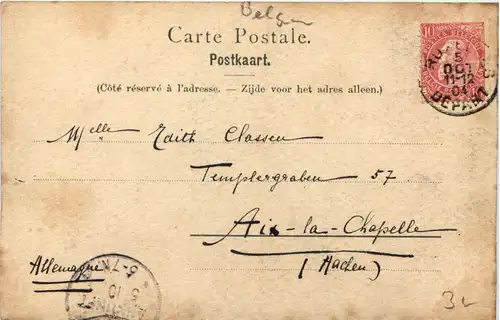 Belgien
Carte Postale.
Postkaart.
(Côté réservé à l'adresse. — Zijde voor het adres alleen.)
10
5
11-12
04
DEPART
Melle Edith Classen
Templergraben 57
Aix-la-Chapelle
(Aachen)
Allemagne
5
10
3.-